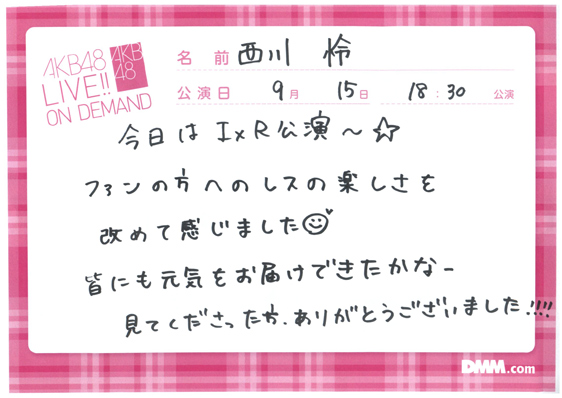 AKB48
LIVE!!
ON DEMAND
AKB
48
名前 西川 怜
公演日 9月 15日 18:30 公演
今日は I×R公演～☆
ファンの方へのレスの楽しさを
改めて感じました
皆にも元気をお届けできたかなー
見てくださった方、ありがとうございました!!!!
DMM.com